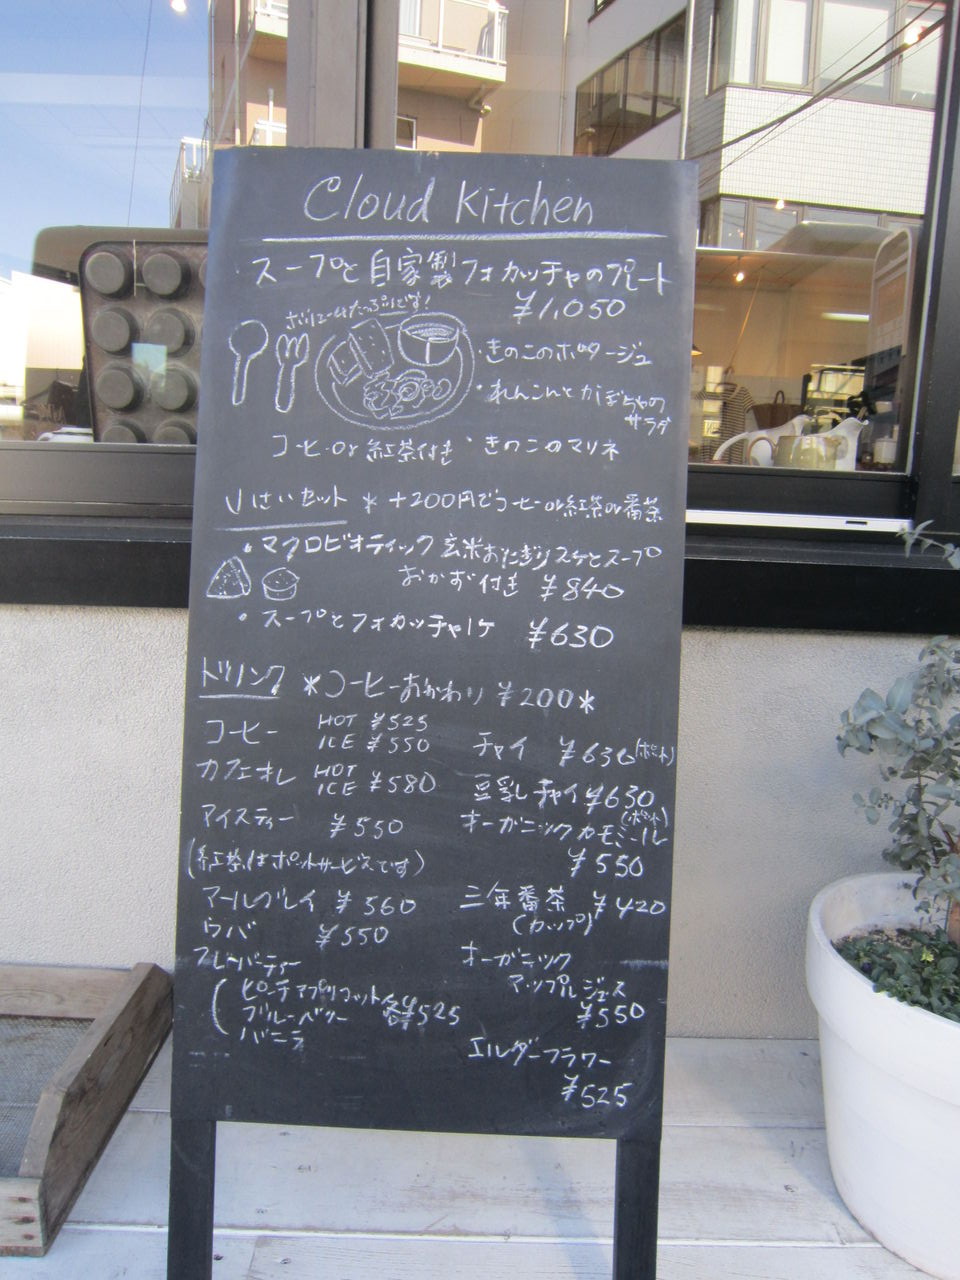 Cloud Kitchen
スープと自家製フォカッチャのプレート
¥1,050
ボリュームたっぷりです!
・きのこのポタージュ
・れんこんとかぼちゃの
サラダ
コーヒーor紅茶付き
・きのこのマリネ
セット * +200円でコーヒーor紅茶or番茶
・マクロビオティック玄米おにぎり2ケとスープ
おかず付き ¥840
・スープとフォカッチャ1ケ ¥630
ドリンク *コーヒーおかわり ¥200*
コーヒー HOT ¥525
ICE ¥550
カフェオレ HOT
ICE ¥580
アイスティー ¥550
(紅茶はポットサービスです)
アールグレイ ¥560
ウバ ¥550
フレーバーティー
ピーチアプリコット
ブルーベリー 各¥525
バニラ
チャイ ¥630(ポット)
豆乳チャイ ¥630
(ポット)
オーガニックカモミール
¥550
三年番茶 ¥420
(カップ)
オーガニック
アップルジュース
¥550
エルダーフラワー
¥525